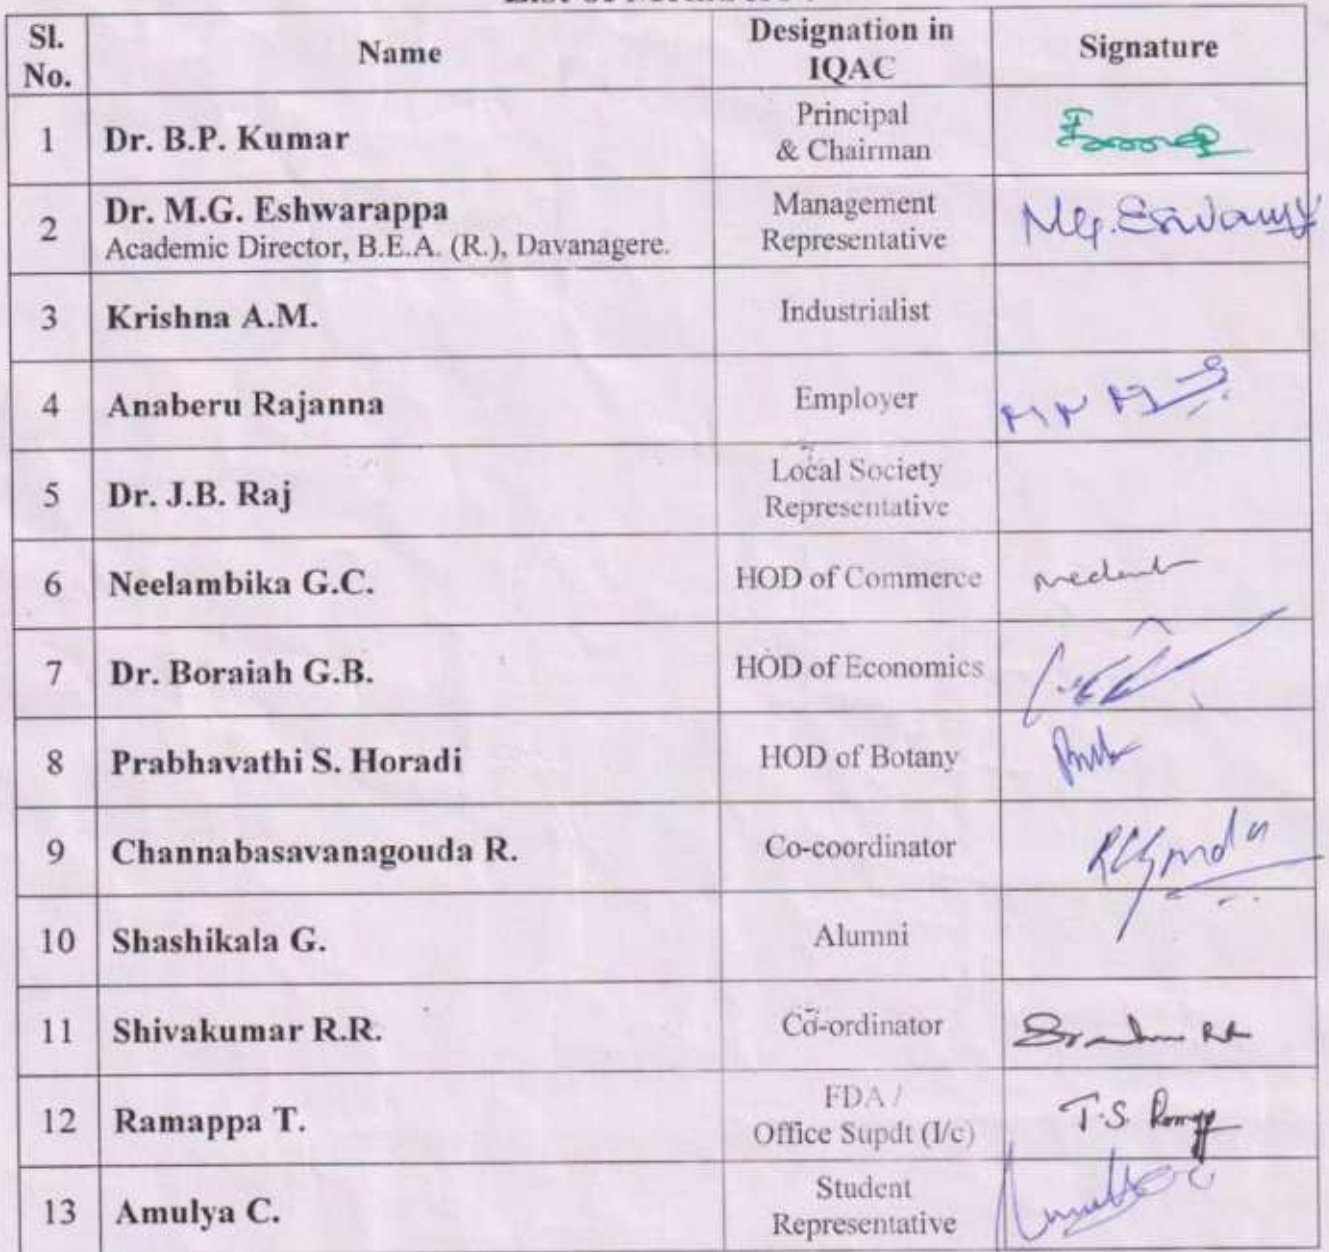 Sl. No.
Name
Designation in IQAC
Signature
1
Dr. B.P. Kumar
Principal & Chairman
2
Dr. M.G. Eshwarappa
Academic Director, B.E.A. (R.), Davanagere.
Management Representative
3
Krishna A.M.
Industrialist
4
Anaberu Rajanna
Employer
5
Dr. J.B. Raj
Local Society Representative
6
Neelambika G.C.
HOD of Commerce
7
Dr. Boraiah G.B.
HOD of Economics
8
Prabhavathi S. Horadi
HOD of Botany
9
Channabasavanagouda R.
Co-coordinator
10
Shashikala G.
Alumni
11
Shivakumar R.R.
Co-ordinator
12
Ramappa T.
FDA / Office Supdt (I/c)
T.S.
13
Amulya C.
Student Representative